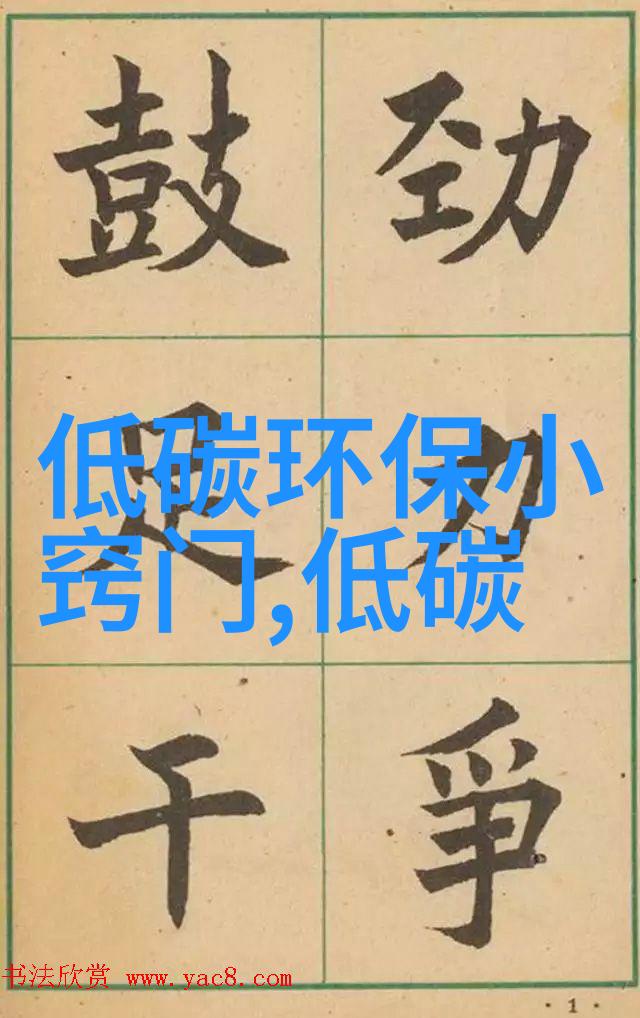 鼓足干
劲力爭
低碳环保小
窍门,低碳
书法欣赏 www.yac8.com
·1·